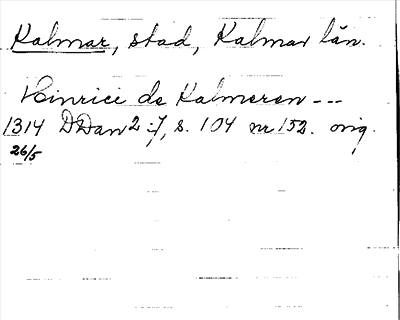 Kalmar, stad, Kalmar län.
Hinrici de Kalmeren ---
1314 DDan 2:7, s. 104 nr 152. orig.
26/5